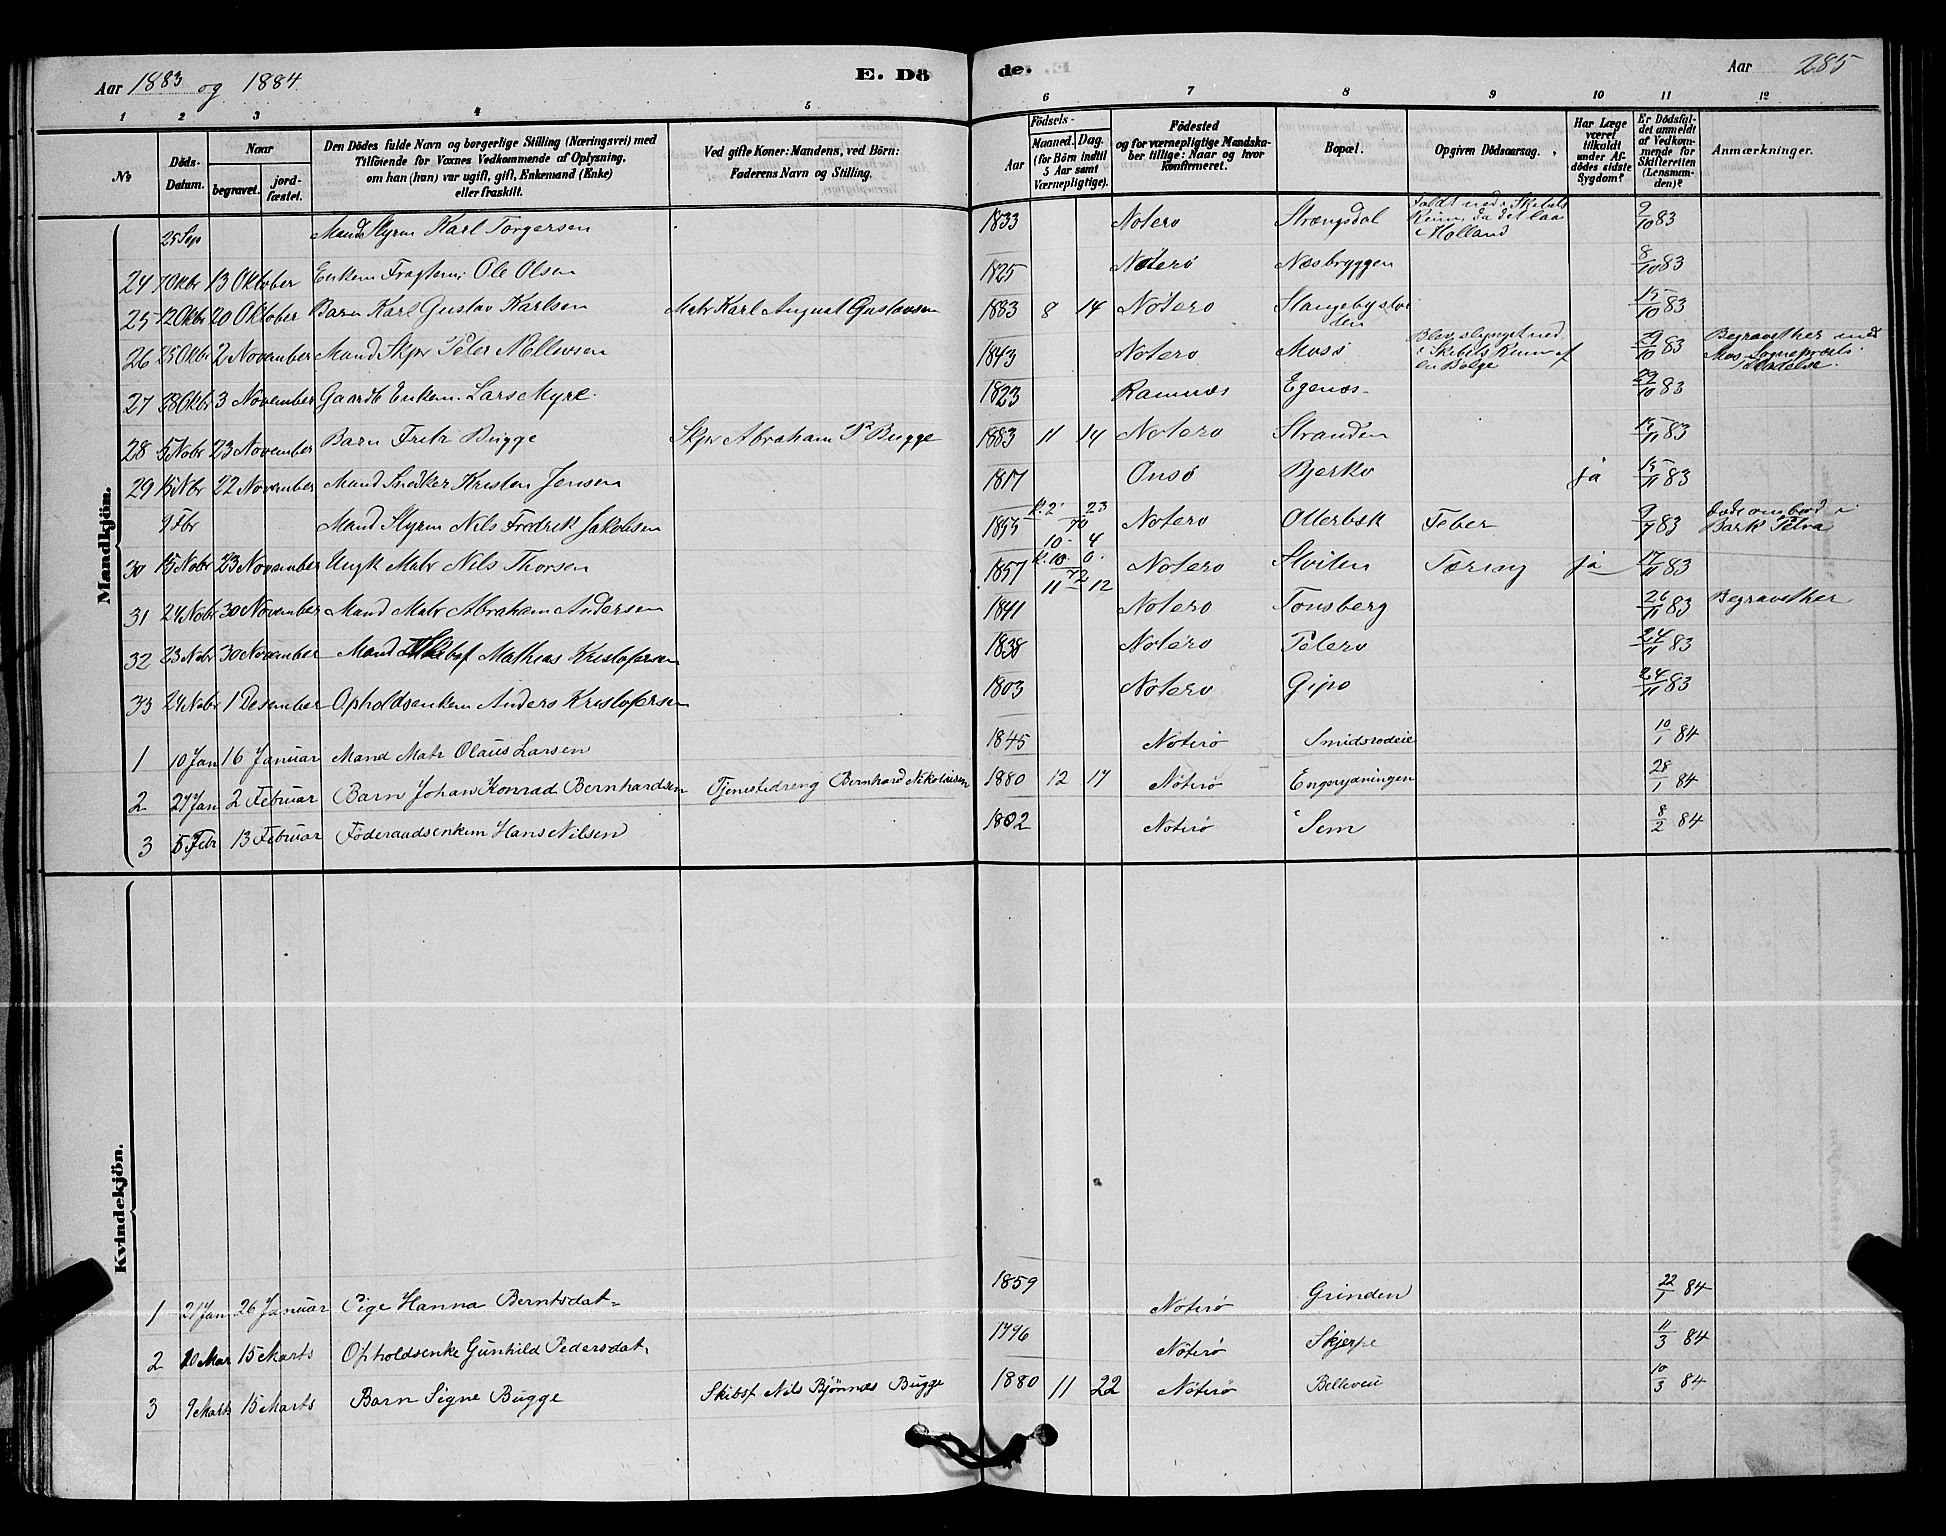 Aar 1883 og 1884.
E. Dö
de.
Aar 285
1 2 3 4 5 6 7 8 9 10 11 12
No
Döds-Datum.
Naar
begravet.
jord-fæstet.
Den Dödes fulde Navn og borgerlige Stilling (Næringsvei) med
Tilföiende for Voxnes Vedkommende af Oplysning,
om han (hun) var ugift, gift, Enkemand (Enke)
eller fraskilt.
Ved gifte Koner: Mandens, ved Börn:
Faderens Navn og Stilling.
Födsels-
Aar
Maaned. Dag.
(for Börn indtil
5 Aar samt
Værnepligtige).
Födested
og for værnepligtige Mandska-
ber tillige: Naar og hvor
konfirmeret.
Bopæl.
Opgiven Dödsaarsag.
Har Læge
været
tilkaldt
under Af-
dödes sidste
Sygdom?
Er Dödsfal-
det anmeldt
af Vedkom-
mende for
Skifteretten
(Lensman-
den)?
Anmærkninger.
Mandkjön.
25 Sep Mand Styrm Karl Torgersen 1833 Noterö Strængsdal Faldt ned i Skibets Reum, da det laa i Holland 9/10 83
24 7 Oktbr 13 Oktober Enkem Fragtem: Ole Olsen 1825 Nöterö Næsbryggen 8/10 83
25 12 Oktbr 20 Oktober Barn Karl Gustav Karlsen Matr Karl August Gustavsen 1883 8 14 Nöterö 15/10 83
26 25 Oktbr 2 November Mand Skpr Peter 1843 Noterö Moss Blev slynget ned i Skibets Reum af en Bölge 29/10 83 Begravet her med Mos Sognepræsts Tilladelse.
27 28 Oktbr 3 November Gaardb Enkem. Lars Myre. 1823 Ramnæs Egenæs 29/10 83
28 5 Nobr 23 November Barn Fritz Bugge Skpr Abraham P Bugge 1883 11 14 Noterö Stranden 15/11 83
29 15 Nbr 22 November Mand Snedker Kristen Jensen 1817 Onsö Bjerkö ja 15/11 83
9 Mand Styrm Nils Fredrik Jakobsen 1855 k. 2 23/70 10 4 Noterö Ollerbsk Feber 9/7 83 Döde ombord i Bark
30 15 Nobr 23 November Ungk Matr Nils Thorsen 1857 k. 10 6/72 11 12 Noterö Hviten Tæring ja 17/11 83
31 24 Nobr 30 November Mand Matr Abraham Andersen 1841 Noterö Tonsberg 26/11 83 Begravet her
32 23 Nobr 30 November Mand Skibsf Mathias Kristofersen 1838 Nöterö 24/11 83
33 24 Nobr 1 Desember Opholdsenkem Anders Kristofersen 1803 Noterö Gipö 24/11 83
1 10 Jan 16 Januar Mand Matr Olaus Larsen 1845 Nöterö Smidsrödeie 10/1 84
2 27 Jan 2 Februar Barn Johan Konrad Bernhardsen Tjenestedreng Bernhard Nikolaisen 1880 12 17 Nöterö Engørydningen 28/1 84
3 5 Febr 13 Februar Föderaadsenkem Hans Nilsen 1802 Nöterö Sem 8/2 84
Kvindekjön.
1 21 Jan 26 Januar Pige Hanna Berntsdat. 1859 Nöterö Grinden 22/1 84
2 10 Mar 15 Marts Opholdsenke Gunhild Pedersdat. 1796 Nöterö Skjerpe 11/3 84
3 9 Marts 15 Marts Barn Signe Bugge Skibsf Nils Bjönnæs Bugge 1880 11 22 Nöterö Belleveu 10/3 84